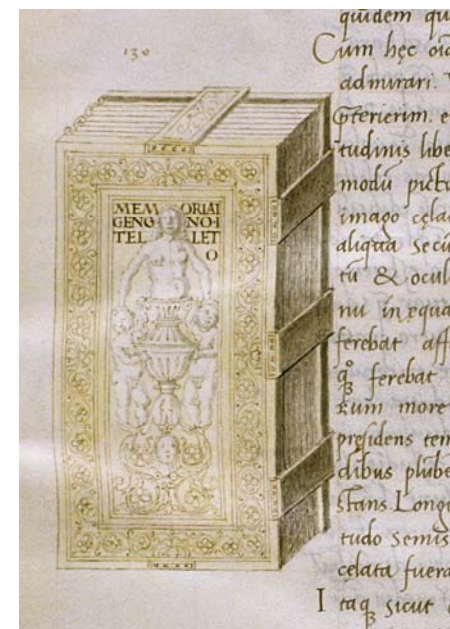 130
MEM ORIAI
GENO NO·I
TEL LET
O
quidem qu
Cum hęc oia
admirari. V
pterierim. e
tudinis libe
modū pictu
imago cęla
aliqua Secu
tū & ocul
nu inequa
ferebat aff
ferebat
more
pręsidens tem
dibus plube
stans. Longi
tudo Semis
cęlata fuera
Itaq sicut